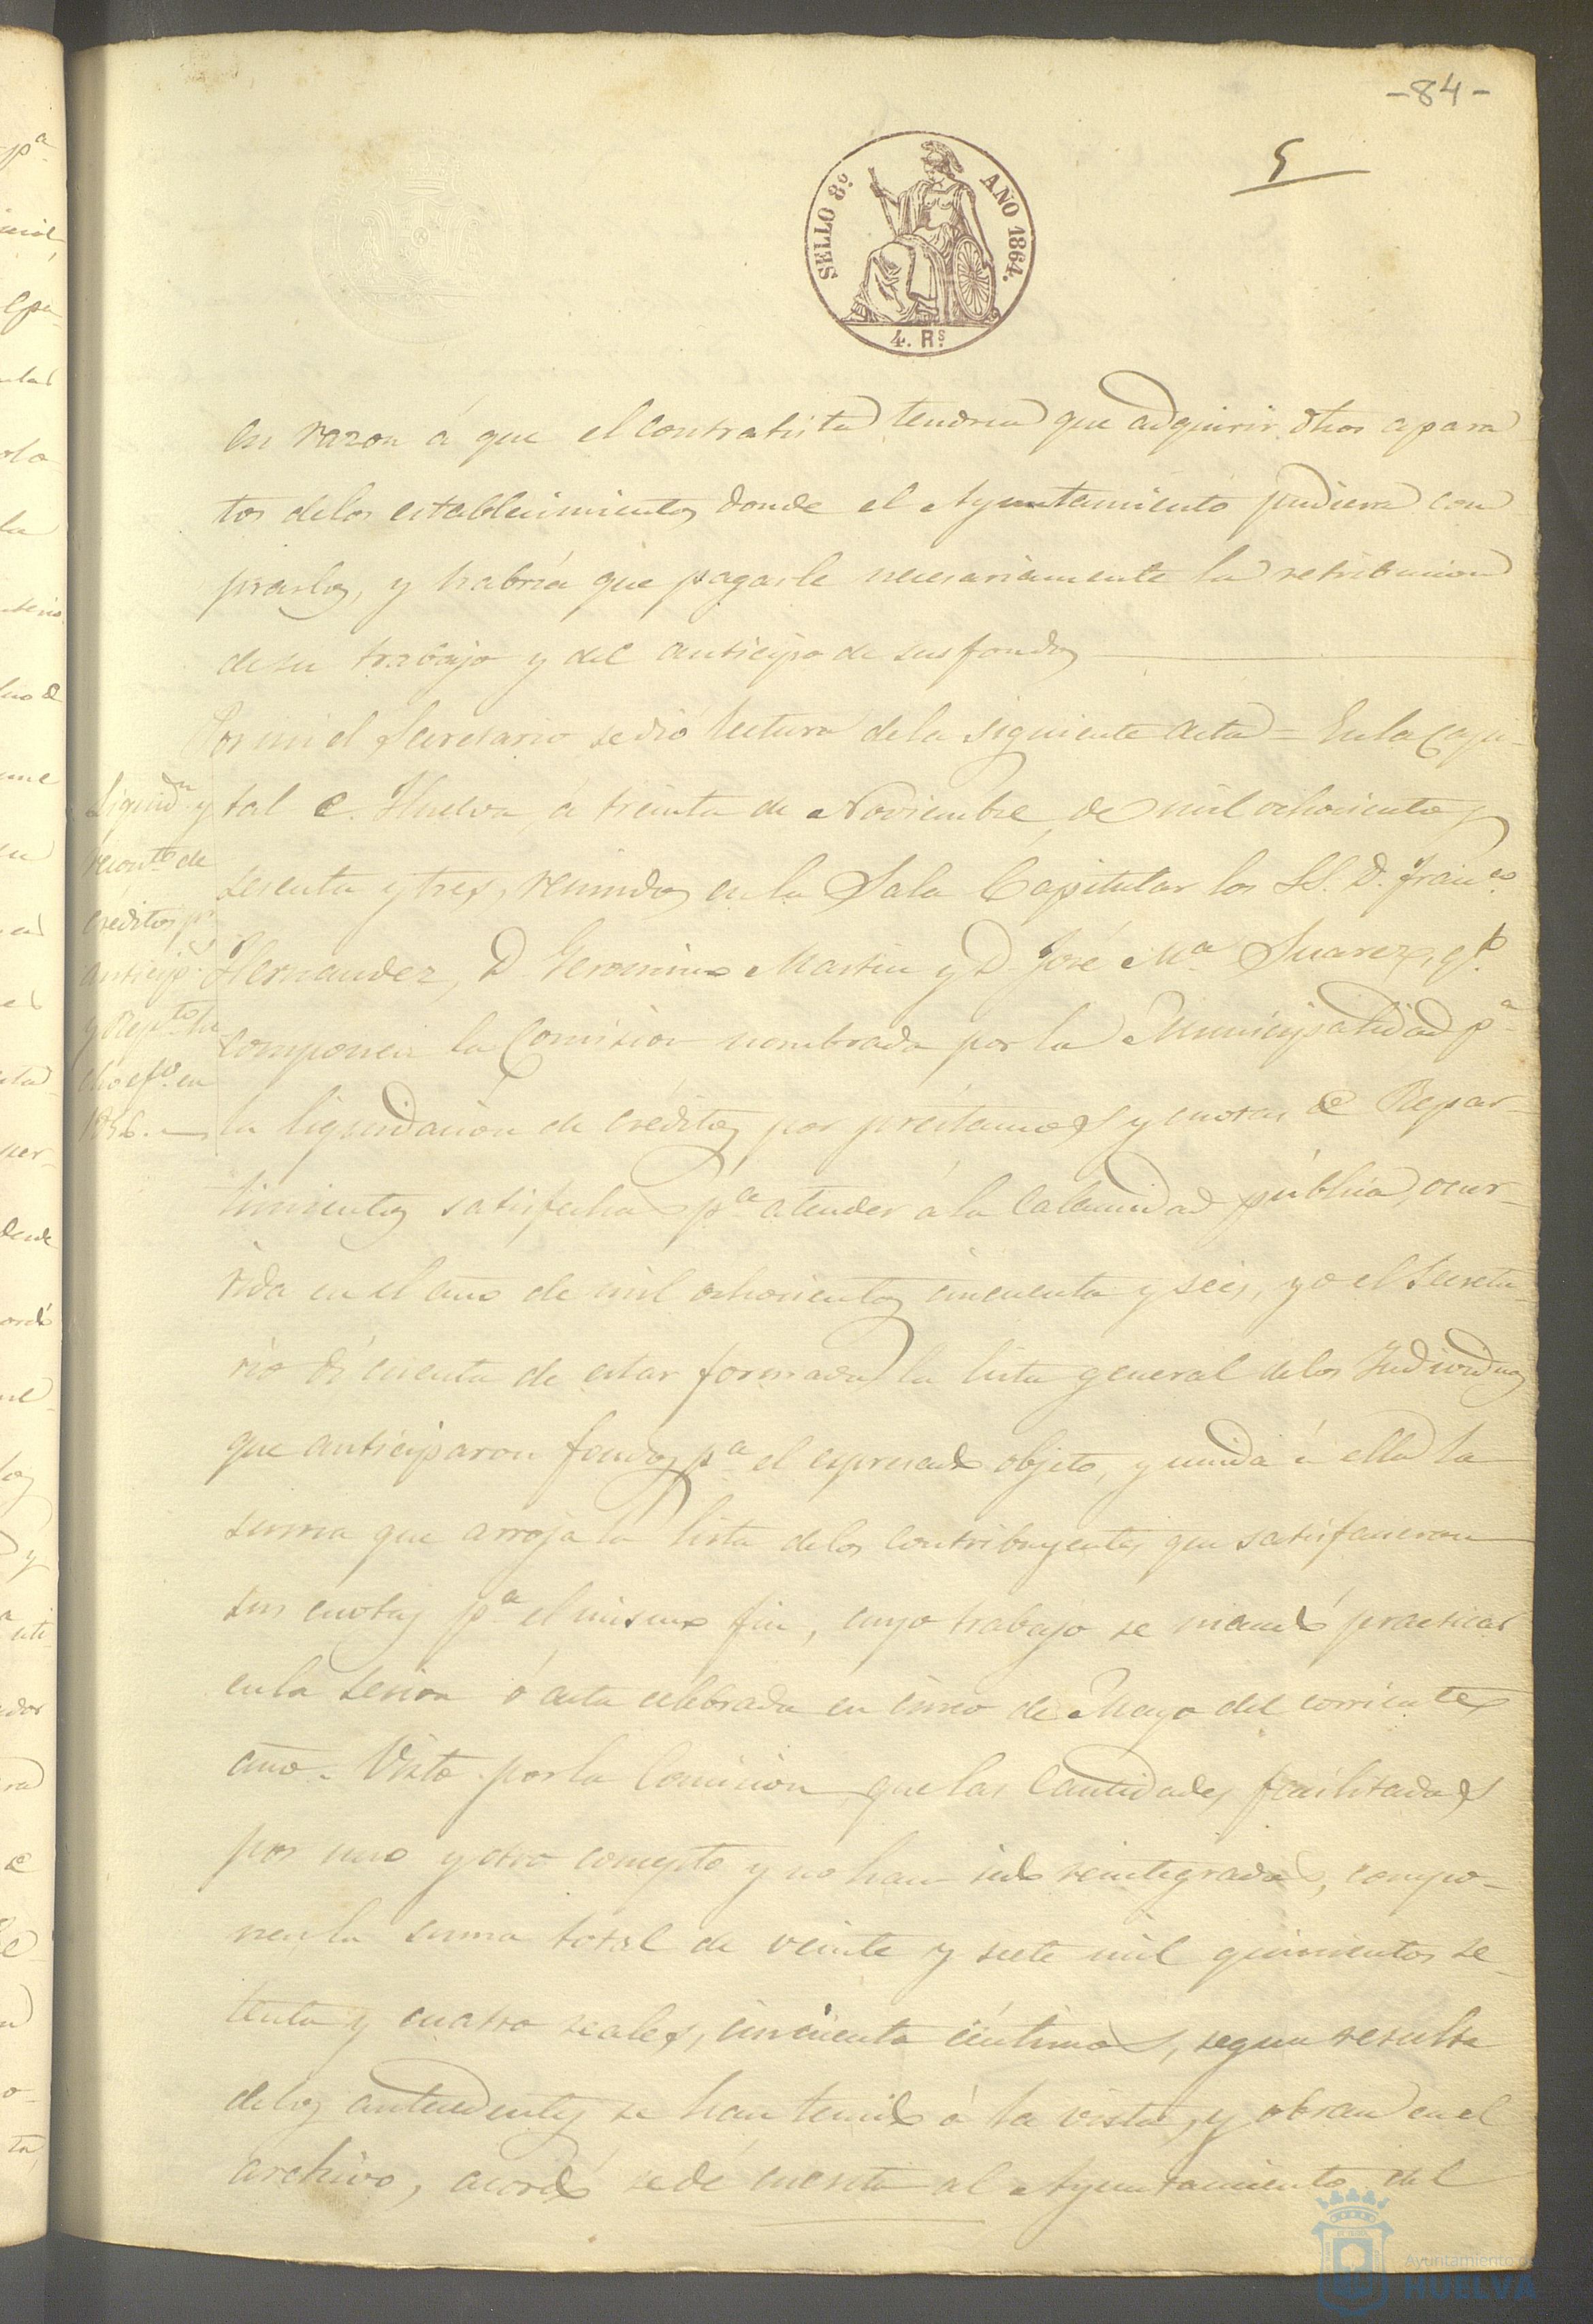 -84-
5
SELLO 8º AÑO 1864.
4. Rs.
en razon á que el contratista tendria que adquirir dhos apara
tos delos establecimientos donde el Ayuntamiento pudiera com
prarlos, y habria que pagarle necesariamente la retribucion
de su trabajo y del anticipo de sus fondos
Por mi el Secretario se dió lectura dela siguiente acta = En la Capi-
tal de Huelva, á treinta de Noviembre de mil ochocientos
sesenta y tres, reunidos en la Sala Capitular los SS. D. Franco.
Hernandez, D. Geronimo Martin y D. José Ma. Suarez, qe.
componen la Comision nombrada por la Municipalidad pa.
la liquidacion de créditos por préstamos y cuotas de Repar-
timientos satisfechas pa. atender á la calamidad pública, ocur-
rida en el año de mil ochocientos cincuenta y seis, yo el Secreta-
rio dí cuenta de estar formada la lista general delos Individuos
que anticiparon fondos pa. el espresado objeto, y unida á ella la
suma que arroja la lista delos contribuyentes que satisfacieron
sus cuotas pa. el mismo fin, cuyo trabajo se mandó practicar
en la sesion ó acta celebrada en cinco de Mayo del corriente
año. Visto por la Comision que las Cantidades facilitadas
por uno y otro concepto y no han sido reintegradas, compo-
nen la suma total de veinte y siete mil quinientos se-
tenta y cuatro reales, cincuenta céntimos, segun resulta
delos antecedentes se han tenido á la vista, y obran en el
archivo, acordó se dé cuenta al Ayuntamiento del
Liquidn. y
reconto. de
créditos pr.
anticips.
y Repto.
dho efo. en
1856.
Ayuntamiento de
HUELVA